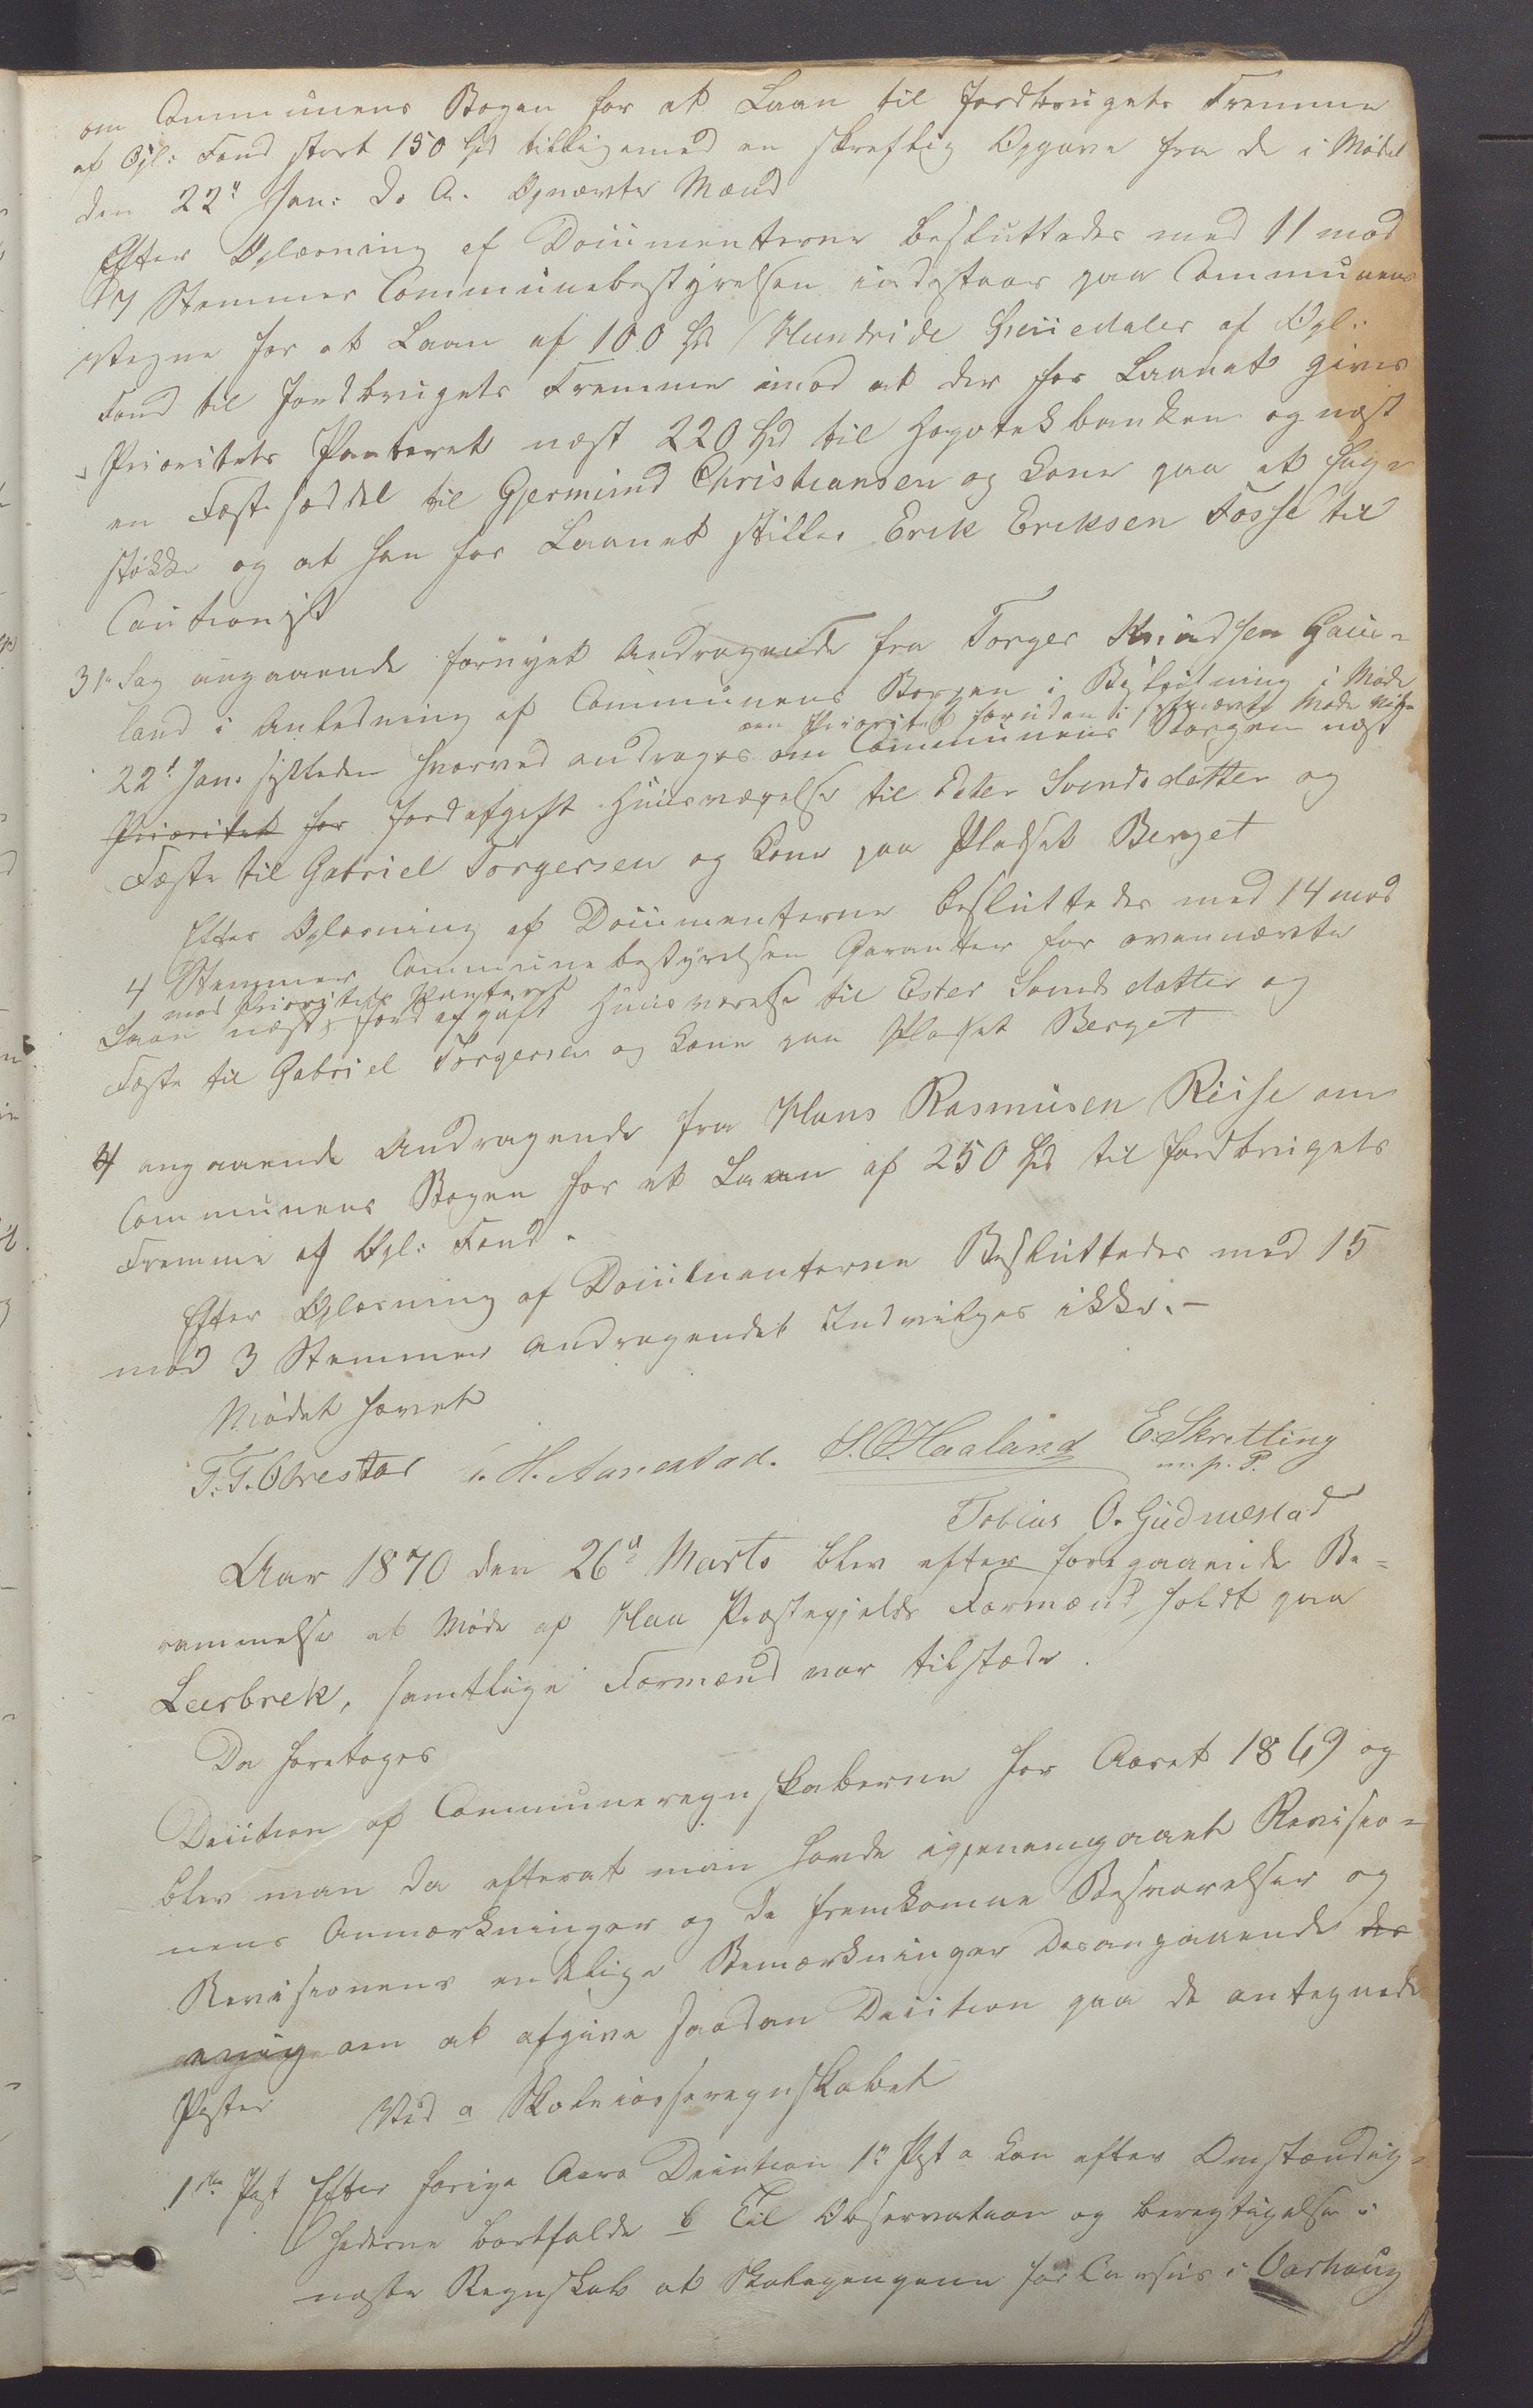 om Communens Borgen for et Laan til Jordbrugets Fremme
af Opl: Fond stort 150 Spd tilligemed en skreftlig Opgave fra de i Mødet
den 22d Jan: d. A. Opnævnte Mænd
Efter Oplæsning af Documenterne besluttedes med 11 mod
7 Stemmer Communebestyrelsen indestaar paa Communens
Vegne for et Laan af 100 Spd (Hundride Speciedaler af Opl:
Fond til Jordbrugets Fremme imod at der for Laanet gives
Prioritets Panteret næst 220 Spd til Hypotekbanken og næst
en Festeseddel til Gjermund Christiansen og Kone paa et
støkke og at han for Laanet stiller Erik Eriksen Fosse til
Cautionist
3 Sag angaaende fornyet Andragende fra Torger Knudsen Haue-
land i Anledning af Communens Borgen i Beslutning i Møde
om Prioritet foruden i Møde
22d Jan: sistleden hvorved androges om Communens Borgen næst
Prioritet for Jordafgift Huusværelse til Ester Svendsdatter og
Feste til Gabriel Torgersen og Kone paa Pladset Berget
Efter Oplæsning af Documenterne besluttedes med 14 mod
4 Stemmer Communebestyrelsen Garanterer for ovennævnte
mod Prioritets Panteret
Laan næst Jordafgift Huusværelse til Ester Svendsdatter og
Feste til Gabriel Torgersen og Kone paa Pladset Berget
4 angaaende Andragende fra Hans Rasmusen Reise om
Communens Borgen for et Laan af 250 Spd til Jordbrugets
Fremme af Opl: Fond.
Efter Oplæsning af Documenterne Besluttedes med 15
mod 3 Stemmer Andragendet Indvilges ikke.-
Mødet hævet
T. T. Obrestad H. Aanestad. S. O. Haaland E. Skretting
m. p. P.
Tobias O. Gudmestad
Aar 1870 den 26d Marts blev efter foregaaende Be-
rammelse et Møde af Haa Præstegjelds Formænd holdt paa
Leerbrek, samtlige Formænd var tilstæde.
Da foretoges
Decition af Communeregnskaberne for Aaret 1869 og
blev man da efterat man havde igjenemgaaet Revisio-
nens Anmærkninger og de fremkomne Besvarelser og
Revisionens endelige Bemærkninger desangaaende
enig om at afgive saadan Decition paa de antegnede
Poster Ved a Skolecasseregnskabet
1ste Post Efter forige Aars Decition 1e Post a kan efter Omstændig-
hederne bortfalde b Til Observation og beregtigelse i
næste Regnskab at Skolepengene for Cassens i Varhaug